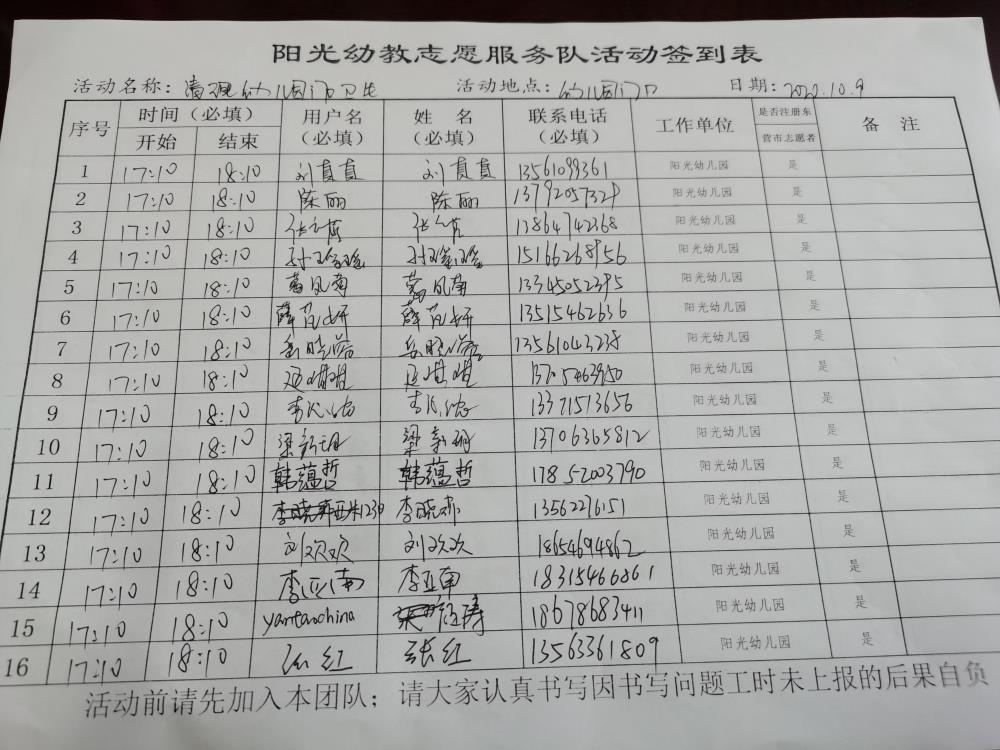 阳光幼教志愿服务队活动签到表
活动名称：清理幼儿园门卫生 活动地点：幼儿园门口 日期：2020.10.9
序号 时间（必填） 用户名（必填） 姓名（必填） 联系电话（必填） 工作单位 是否注册东营市志愿者 备注
开始 结束
1 17:10 18:10 刘真真 刘真真 13561099361 阳光幼儿园 是
2 17:10 18:10 陈丽 陈丽 阳光幼儿园 是
3 17:10 18:10 13864742368 阳光幼儿园 是
4 17:10 18:10 孙瑶瑶 孙瑶瑶 15166268956 阳光幼儿园 是
5 17:10 18:10 葛凤南 葛凤南 阳光幼儿园 是
6 17:10 18:10 薛范妍 薛范妍 13515462636 阳光幼儿园 是
7 17:10 18:10 阳光幼儿园 是
8 17:10 18:10 阳光幼儿园 是
9 17:10 18:10 13371513656 阳光幼儿园 是
10 17:10 18:10 梁新珊 梁新珊 13706365812 阳光幼儿园 是
11 17:10 18:10 韩蕴哲 韩蕴哲 17852003790 阳光幼儿园 是
12 17:10 18:10 李晓 阳光幼儿园 是
13 17:10 18:10 刘欢欢 刘欢欢 18654694862 阳光幼儿园 是
14 17:10 18:10 李亚南 李亚南 18315466861 阳光幼儿园 是
15 17:10 18:10 yantaochina 18678683411 阳光幼儿园 是
16 17:10 18:10 张红 张红 13563361809 阳光幼儿园 是
活动前请先加入本团队；请大家认真书写因书写问题工时未上报的后果自负